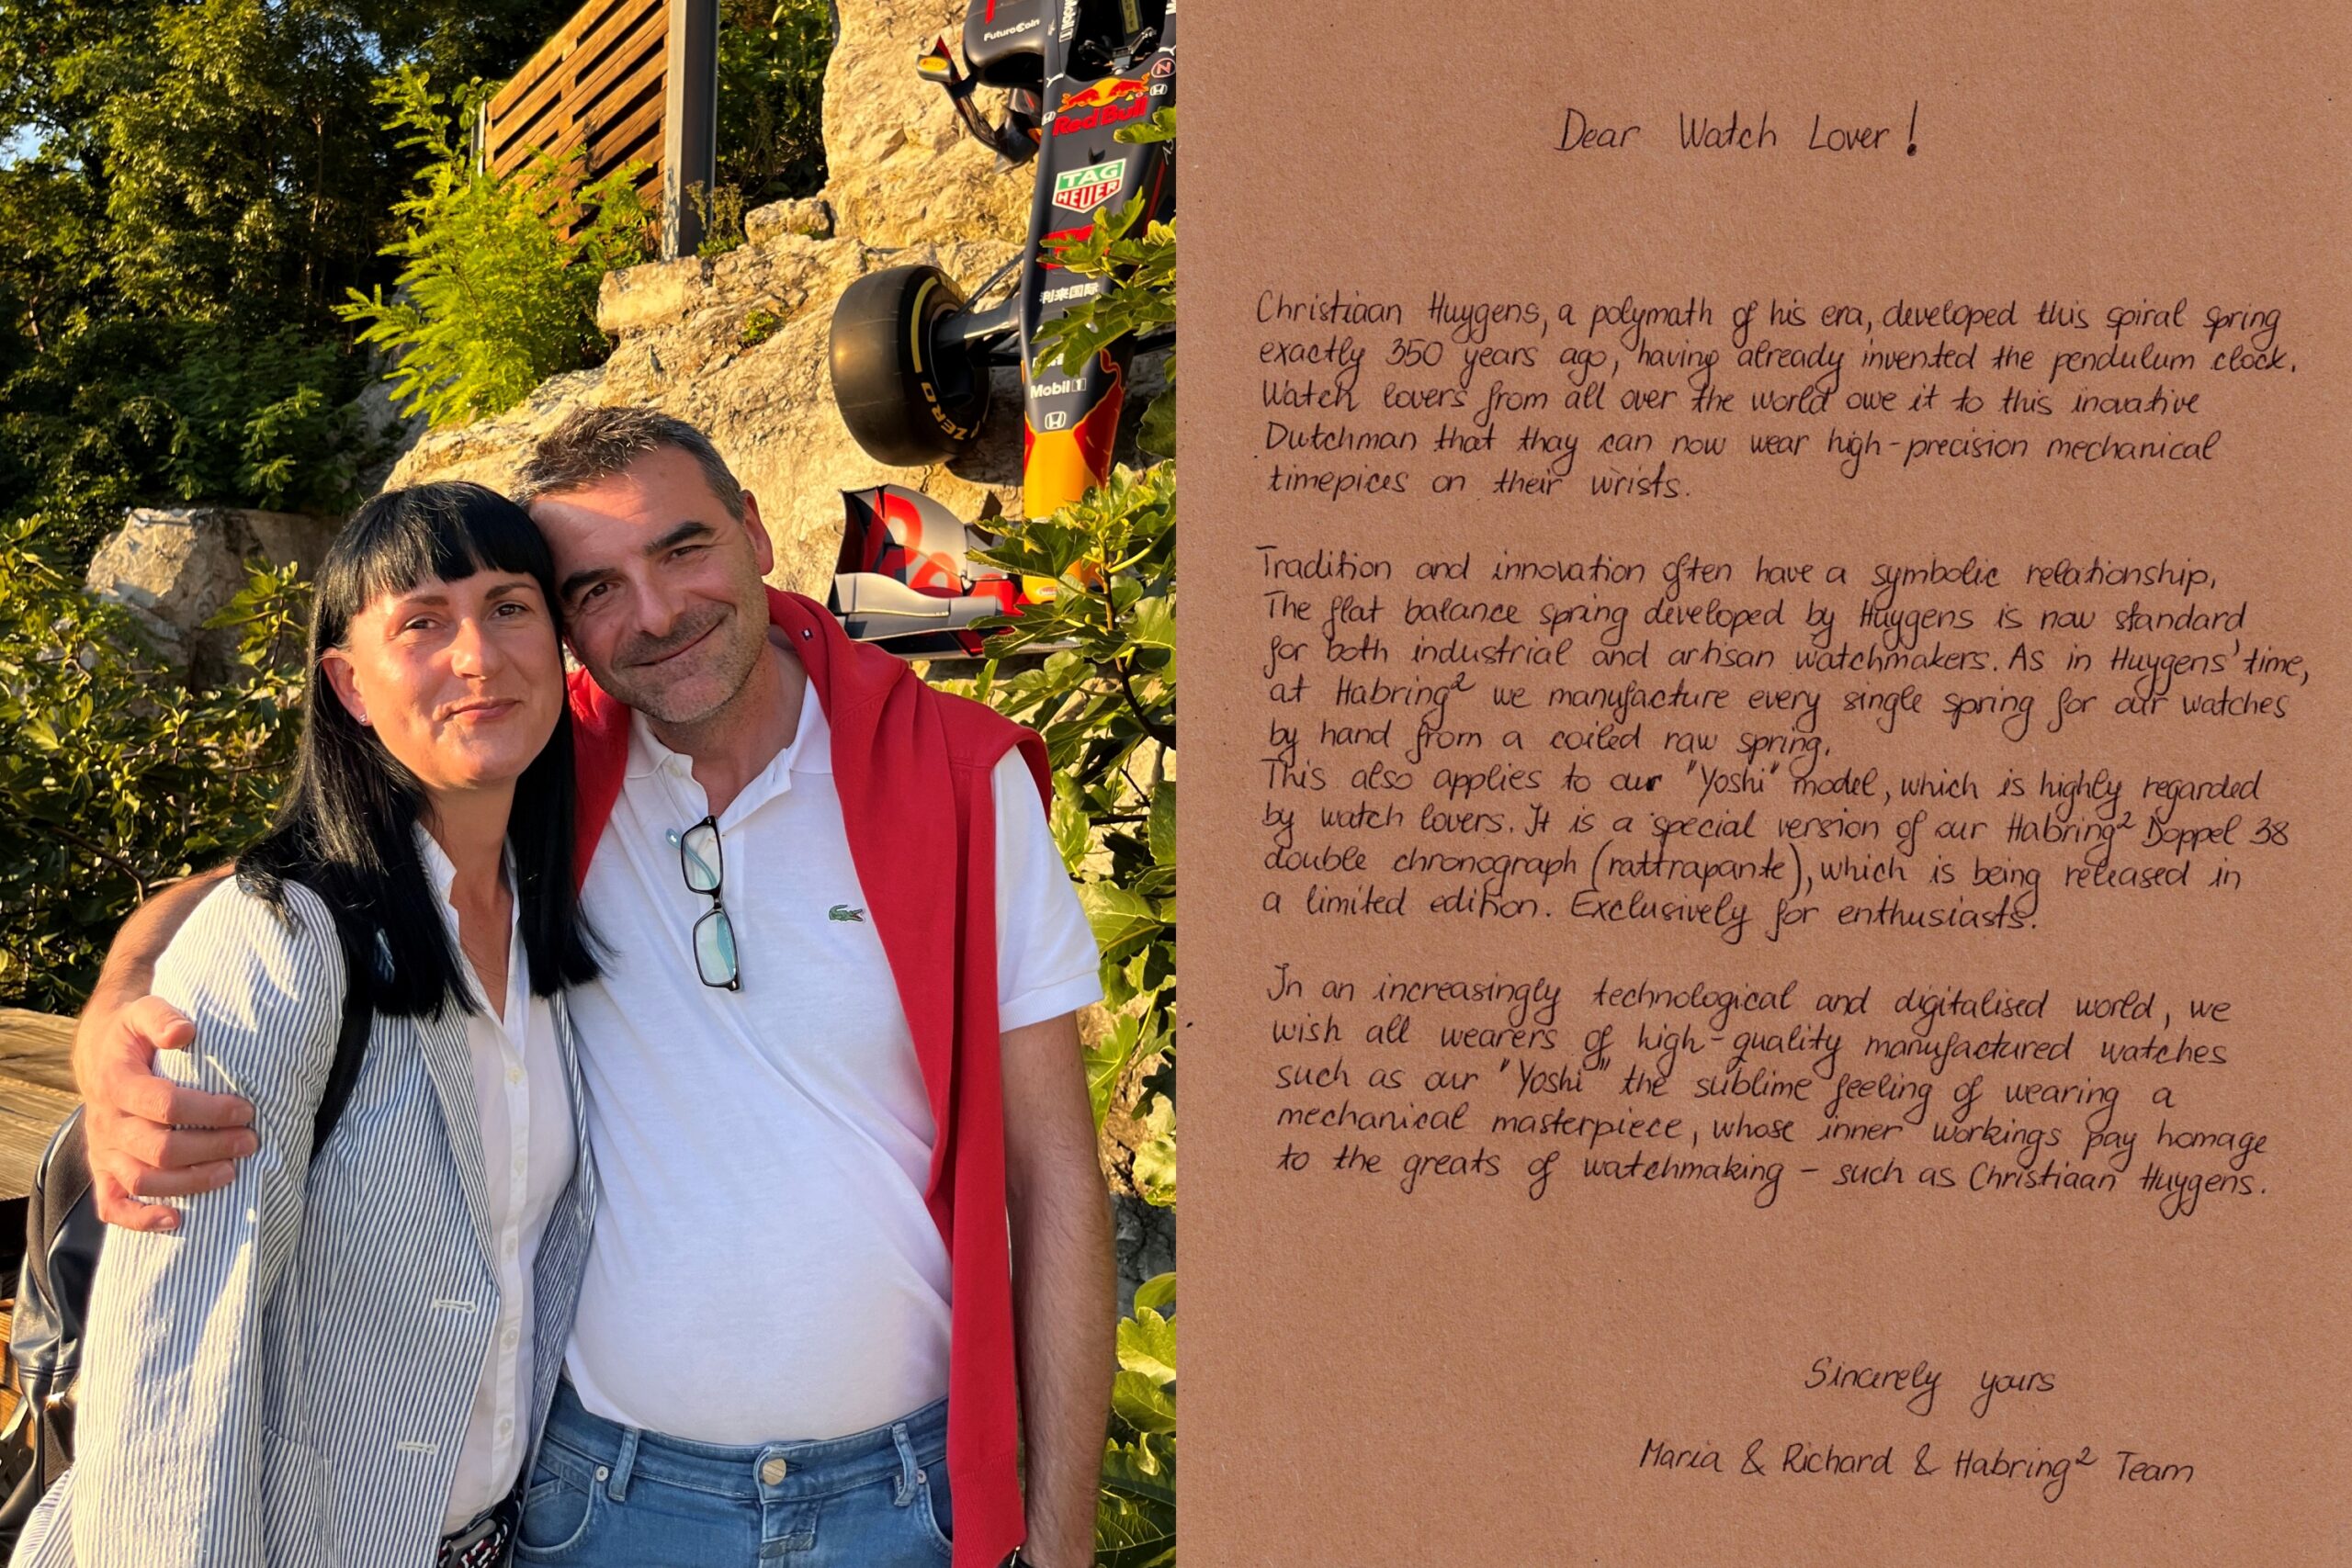 FuturoCoin
Red Bull
TAG
HEUER
利来国际
Mobil 1
ZERO
Dear Watch Lover!
Christiaan Huygens, a polymath of his era, developed this spiral spring
exactly 350 years ago, having already invented the pendulum clock.
Watch lovers from all over the world owe it to this inovative
Dutchman that thay can now wear high-precision mechanical
timepices on their wrists.
Tradition and innovation often have a symbolic relationship,
The flat balance spring developed by Huygens is now standard
for both industrial and artisan watchmakers. As in Huygens' time,
at Habring² we manufacture every single spring for our watches
by hand from a coiled raw spring.
This also applies to our "Yoshi" model, which is highly regarded
by watch lovers. It is a special version of our Habring² Doppel 38
double chronograph (rattrapante), which is being released in
a limited edition. Exclusively for enthusiasts.
In an increasingly technological and digitalised world, we
wish all wearers of high-quality manufactured watches
such as our "Yoshi" the sublime feeling of wearing a
mechanical masterpiece, whose inner workings pay homage
to the greats of watchmaking – such as Christiaan Huygens.
Sincerely yours
Maria & Richard & Habring² Team